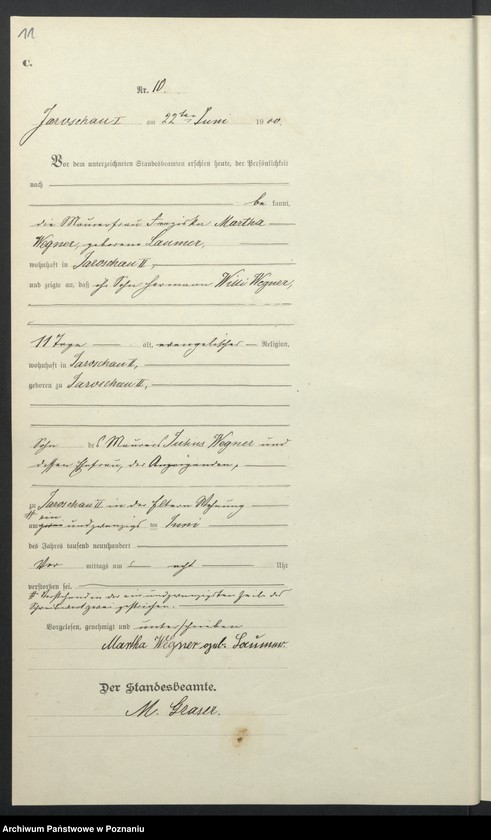 11
C.
Nr. 10.
Jaroschau I am 22ten Juni 1900.
Vor dem unterzeichneten Standesbeamten erschien heute, der Persönlichkeit
nach
bekannt,
die Maurerfrau Franziska Martha
Wegner, geborene Laumer,
wohnhaft in Jaroschau II,
und zeigte an, daß ihr Sohn Hermann Willi Wegner,
11 Tage alt, evangelischer Religion,
wohnhaft in Jaroschau II,
geboren zu Jaroschau II,
Sohn des Maurers Julius Wegner und
dessen Ehefrau, der Anzeigenden,
zu Jaroschau II in der Eltern Wohnung
# ein
am zwei undzwanzigsten Juni
des Jahres tausend neunhundert
Vor mittags um acht Uhr
verstorben sei.
# Vorstehenden der einundzwanzigsten Zeile das
zwei gestrichen.
Vorgelesen, genehmigt und unterschrieben
Martha Wegner geb. Laumer.
Der Standesbeamte.
M. Glaser.
Archiwum Państwowe w Poznaniu